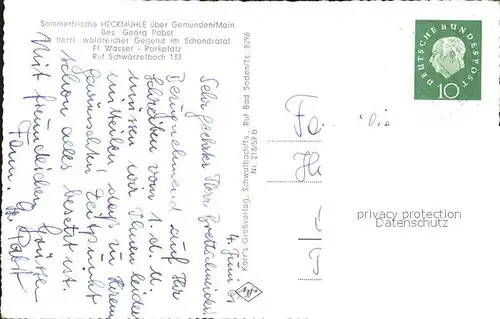 Sommerfrische HECKMÜHLE über Gemünden/Main
Bes. Georg Pabst
herrl. waldreicher Gegend im Schondratal
Fl. Wasser - Parkplatz
Ruf Schwärzelbach 133
4. Juni 61
Sehr geehrter Herr Brettschneider!
Bezugnehmend auf Ihr
Schreiben vom 1. d. M.
müssen wir Ihnen leider
mitteilen, dass zu Ihrem
gewünschten Zeitpunkt
schon alles besetzt ist.
Mit freundlichen Grüssen
Fam. G. Pabst
Verlag, Schwalbach/Ts., Ruf Bad Soden/Ts. 8296
Nr. 218/59 b
DEUTSCHE BUNDESPOST
10
Fa
privacy protection
Datenschutz